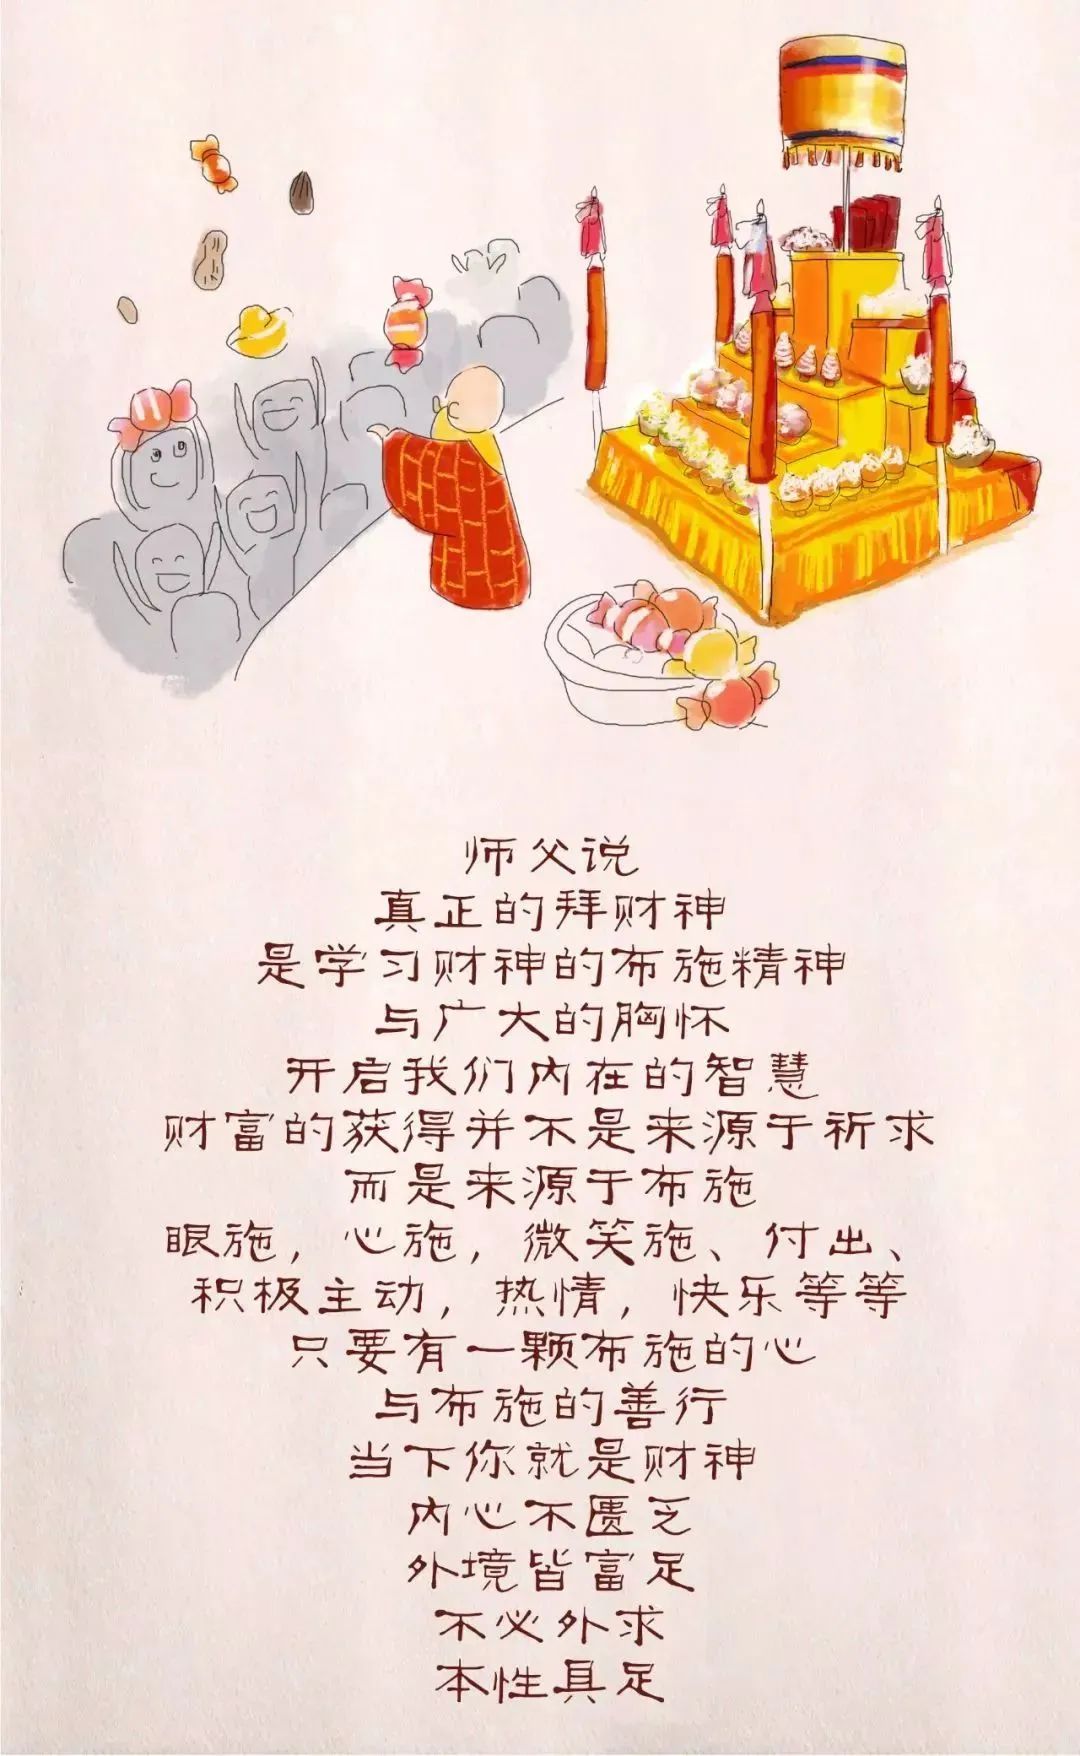 师父说
真正的拜财神
是学习财神的布施精神
与广大的胸怀
开启我们内在的智慧
财富的获得并不是来源于祈求
而是来源于布施
眼施，心施，微笑施、付出、
积极主动，热情，快乐等等
只要有一颗布施的心
与布施的善行
当下你就是财神
内心不匮乏
外境皆富足
不必外求
本性具足